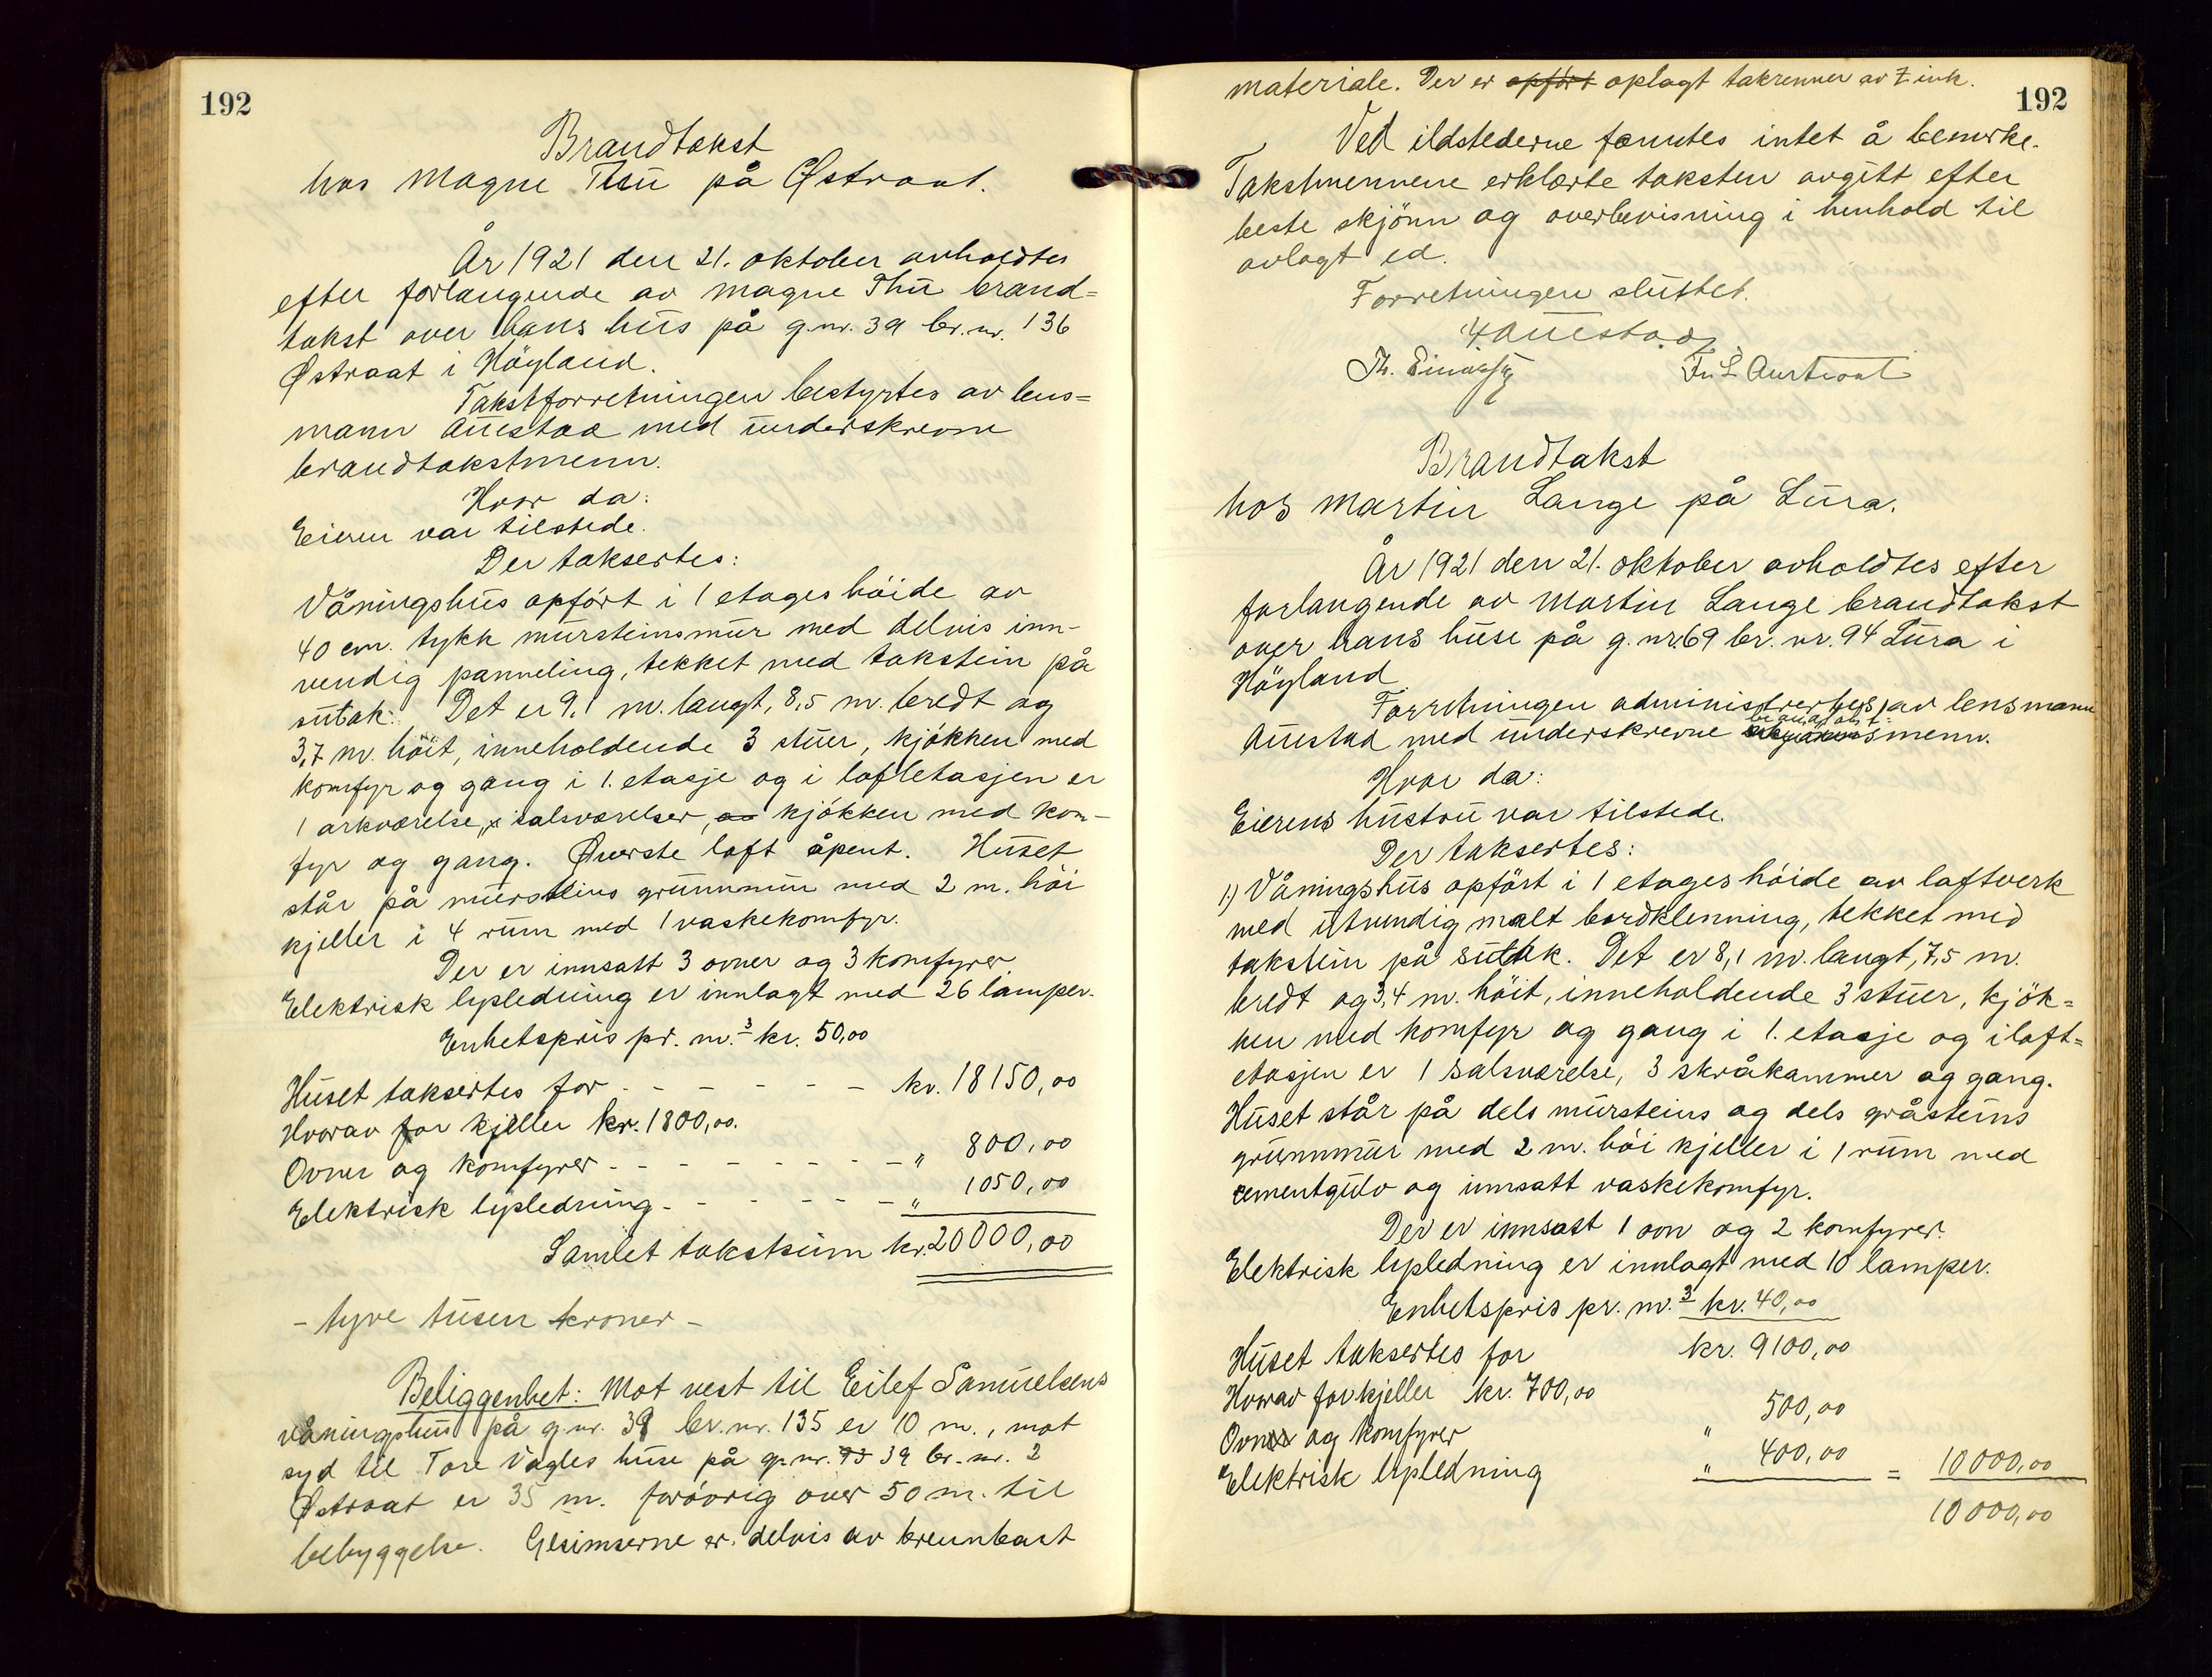 192
Brandtakst
hos Magne Thu på Østraat.
År 1921 den 21. oktober avholdtes
efter forlangende av Magne Thu brand=
takst over hans hus på g.nr. 39 br.nr. 136
Østraat i Höyland.
Takstforretningen bestyrtes av lens=
mann Auestad med underskrevne
brandtakstmenn.
Hvor da:
Eieren var tilstede.
Der taksertes:
Våningshus opfört i 1 etages höide av
40 cm. tykk mursteinsmur med delvis inn-
vendig panneling, tekket med takstein på
sutak. Det er 9,1 m. langt, 8,5 m. bredt og
3,7 m. höit, inneholdende 3 stuer, kjökken med
komfyr og gang i 1. etasje og i loftetasjen er
1 arkværelse, salsværelser, kjökken med kom-
fyr og gang. Øverste loft åpent. Huset
står på mursteins grunnmur med 2 m. höi
kjeller i 4 rum med 1 vaskekomfyr.
Der er innsatt 3 ovner og 3 komfyrer.
Elektrisk lysledning er innlagt med 26 lamper.
Enhetspris pr. m.³ kr. 50,00
Huset taksertes for - - - - - - kr. 18150,00
Hvorav for kjeller kr. 1800,00.
Ovner og komfyrer - - - - - - - - " 800,00
Elektrisk lysledning - - - - - - " 1050,00
Samlet takstsum kr. 20000,00
- tyve tusen kroner -
Beliggenhet: Mot vest til Eilef Samuelsens
våningshus på g.nr. 39 br.nr. 135 er 10 m., mot
syd til Tore Vagles huse på g.nr. 39 br.nr. 2
Østraat er 35 m. forövrig over 50 m. til
bebyggelse. Gesimserne er delvis av brennbart
materiale. Der er opfört oplagt takrenner av Zink.
192
Ved ildstederne fanntes intet å bemerke.
Takstmennene erklærte taksten avgitt efter
beste skjönn og overbevisning i henhold til
avlagt ed.
Forretningen sluttet.
Auestad
Fr. L Austraat
Brandtakst
hos Martin Lange på Lura.
År 1921 den 21. oktober avholdtes efter
forlangende av Martin Lange brandtakst
over hans huse på g.nr. 69 br.nr. 94 Lura i
Höyland
Forretningen administrertes av lensmann
brandtakst=
Auestad med underskrevne menn.
Hvor da:
Eierens hustru var tilstede.
Der taksertes:
1.) Våningshus opfört i 1 etages höide av laftverk
med utvendig malt bordklenning, tekket med
takstein på sutak. Det er 8,1 m. langt, 7,5 m.
bredt og 3,4 m. höit, inneholdende 3 stuer, kjök=
ken med komfyr og gang i 1. etasje og i loft=
etasjen er 1 salsværelse, 3 skråkammer og gang.
Huset står på dels mursteins og dels gråsteins
grunnmur med 2 m. höi kjeller i 1 rum med
cementgulv og innsatt vaskekomfyr.
Der er innsatt 1 ovn og 2 komfyrer.
Elektrisk lysledning er innlagt med 10 lamper.
Enhetspris pr. m.³ kr. 40,00
Huset taksertes for kr. 9100,00
Hvorav for kjeller kr. 700,00
Ovn og komfyrer " 500,00
Elektrisk lysledning " 400,00 = 10000,00
10000,00